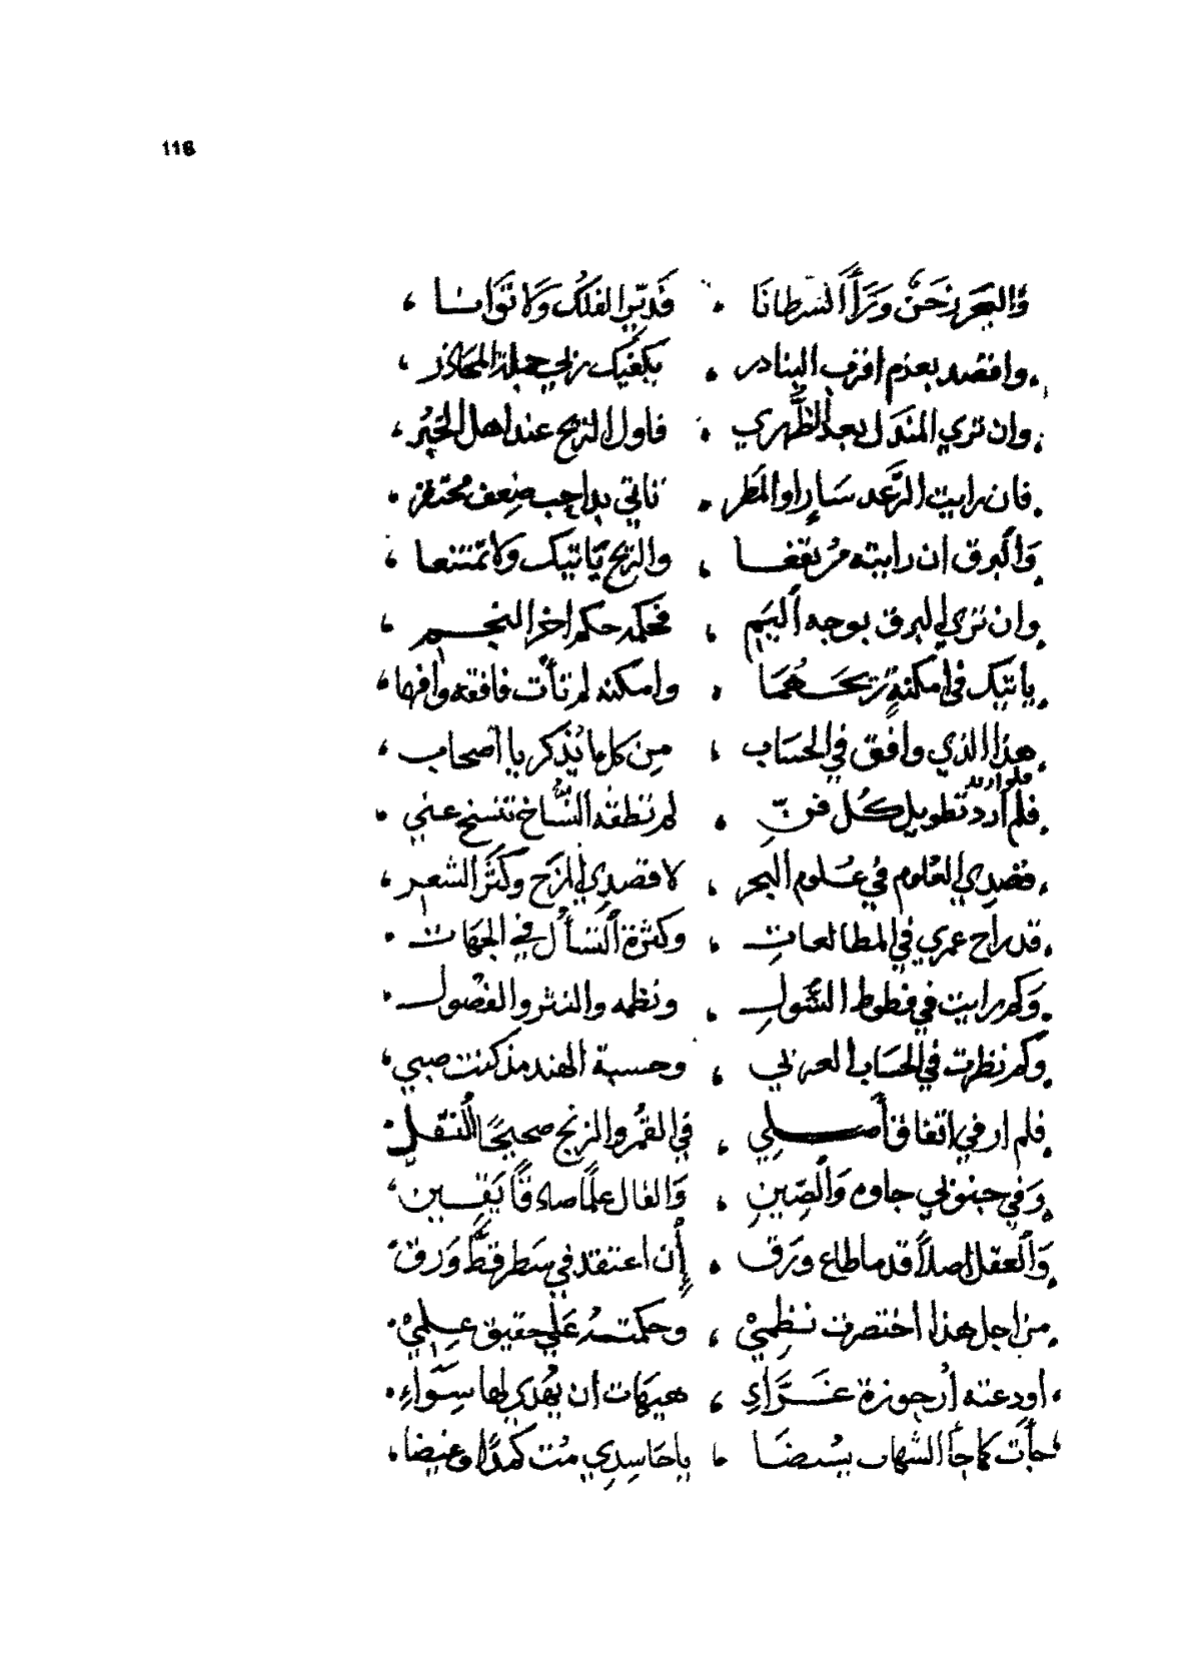 116
والبحر زخن ورأ السرطانا . فدبّر الفلك ولا توانا ،
واقصد بعزم اقرب البنادر . يكفيك ربي جملة المحاذر ،
وان تري المندل بعد الظهري . فاول الريح عند اهل الخبر ،
فان رايت الرعد سايرا والمطر . ناتي بواجب ضعف محتقر .
والبرق ان رايته مرتفعا ، والريح ياتيك ولا تمتنعا ،
وان تري البرق بوجه اليم ، فحكمه حكم اخر النجم ،
ياتيك في امكنة ريحهما . وامكنه لم تأت فافقه وافهما ،
هذا الذي وافق في الحساب ، من كلما يذكر يا اصحاب ،
فلو اريد
فلم ارد تطويل كل فنّ . لم تطقه النساخ تنسخ عني .
فقصدي العلوم في علوم البحر ، لا قصدي المزح وكثر الشعر ،
قد راح عمري في المطالعات ، وكثرة التسأل في الجهات .
وكم رايت في خطوط الشول ، ونظمه والنثر والفصول .
وكم نظرت في الحساب العربي ، وحسبة الهند مذ كنت صبي ،
فلم ار في اتفاق أصلي ، في القمر والزنج صحيحا النقل .
وفي جنوبي جاوه والصين ، والفال علما صادقا يقين ،
والعقل اصلا قد ما طاع ورق . أن اعتقد في سطر قط ورق .
من اجل هذا اختصرت نظمي ، وحكمته علي حقيق علمي .
اودعته أرجوزة غرّاءِ ، هيهات أن يهدي لها سواءِ .
جأت كما جأ الشهاب يستضا ، يا حاسدي مت كمدا وغيضا ،